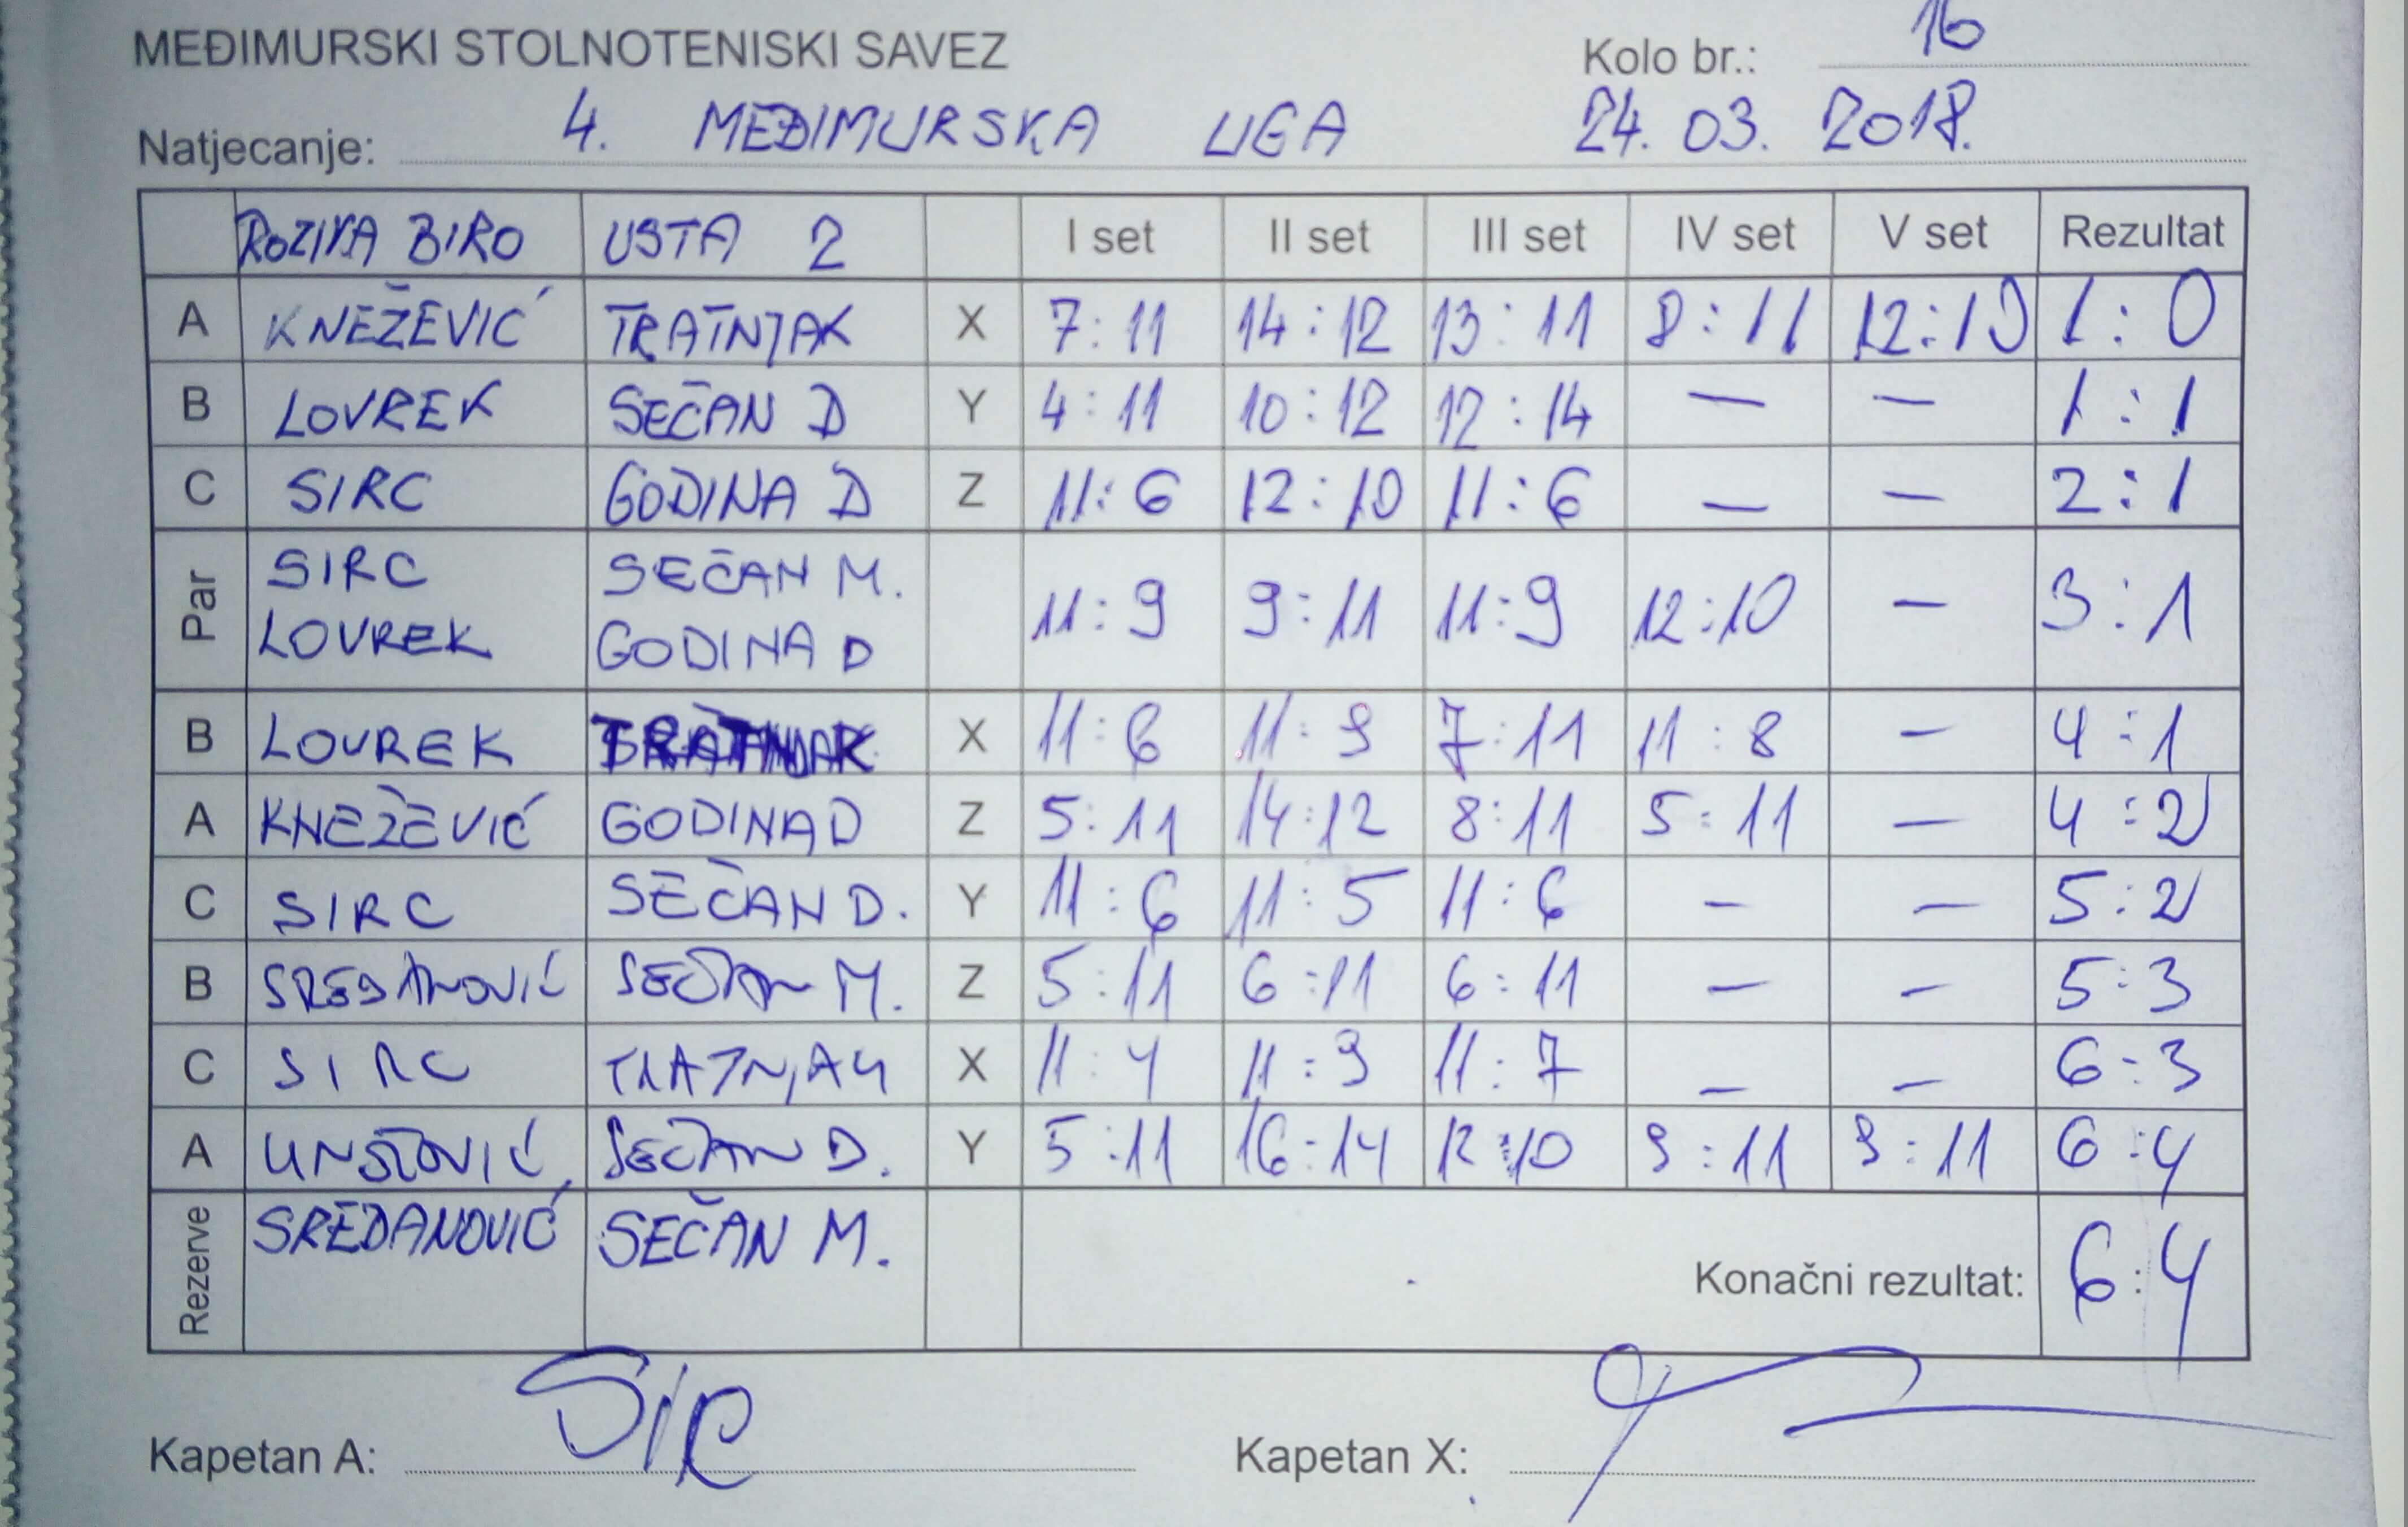 MEĐIMURSKI STOLNOTENISKI SAVEZ Kolo br.: 16
Natjecanje: 4. MEĐIMURSKA LIGA 24.03.2018.
ROZINA BIRO USTA 2 I set II set III set IV set V set Rezultat
A KNEŽEVIĆ TRATNJAK X 7:11 14:12 13:11 8:11 12:10 1:0
B LOVREK SEČAN D Y 4:11 10:12 12:14 — — 1:1
C SIRC GODINA D Z 11:6 12:10 11:6 — — 2:1
Par SIRC SEČAN M. 11:9 9:11 11:9 12:10 — 3:1
LOVREK GODINA D
B LOVREK TRATNJAK X 11:6 11:9 7:11 11:8 — 4:1
A KNEŽEVIĆ GODINA D Z 5:11 14:12 8:11 5:11 — 4:2
C SIRC SEČAN D. Y 11:6 11:5 11:6 — — 5:2
B SREDANOVIĆ SEČAN M. Z 5:11 6:11 6:11 — — 5:3
C SIRC TRATNJAK X 11:4 11:9 11:7 — — 6:3
A SEČAN D. Y 5:11 16:14 12:10 9:11 9:11 6:4
Rezerve SREDANOVIĆ SEČAN M.
Konačni rezultat: 6:4
Kapetan A: Kapetan X: